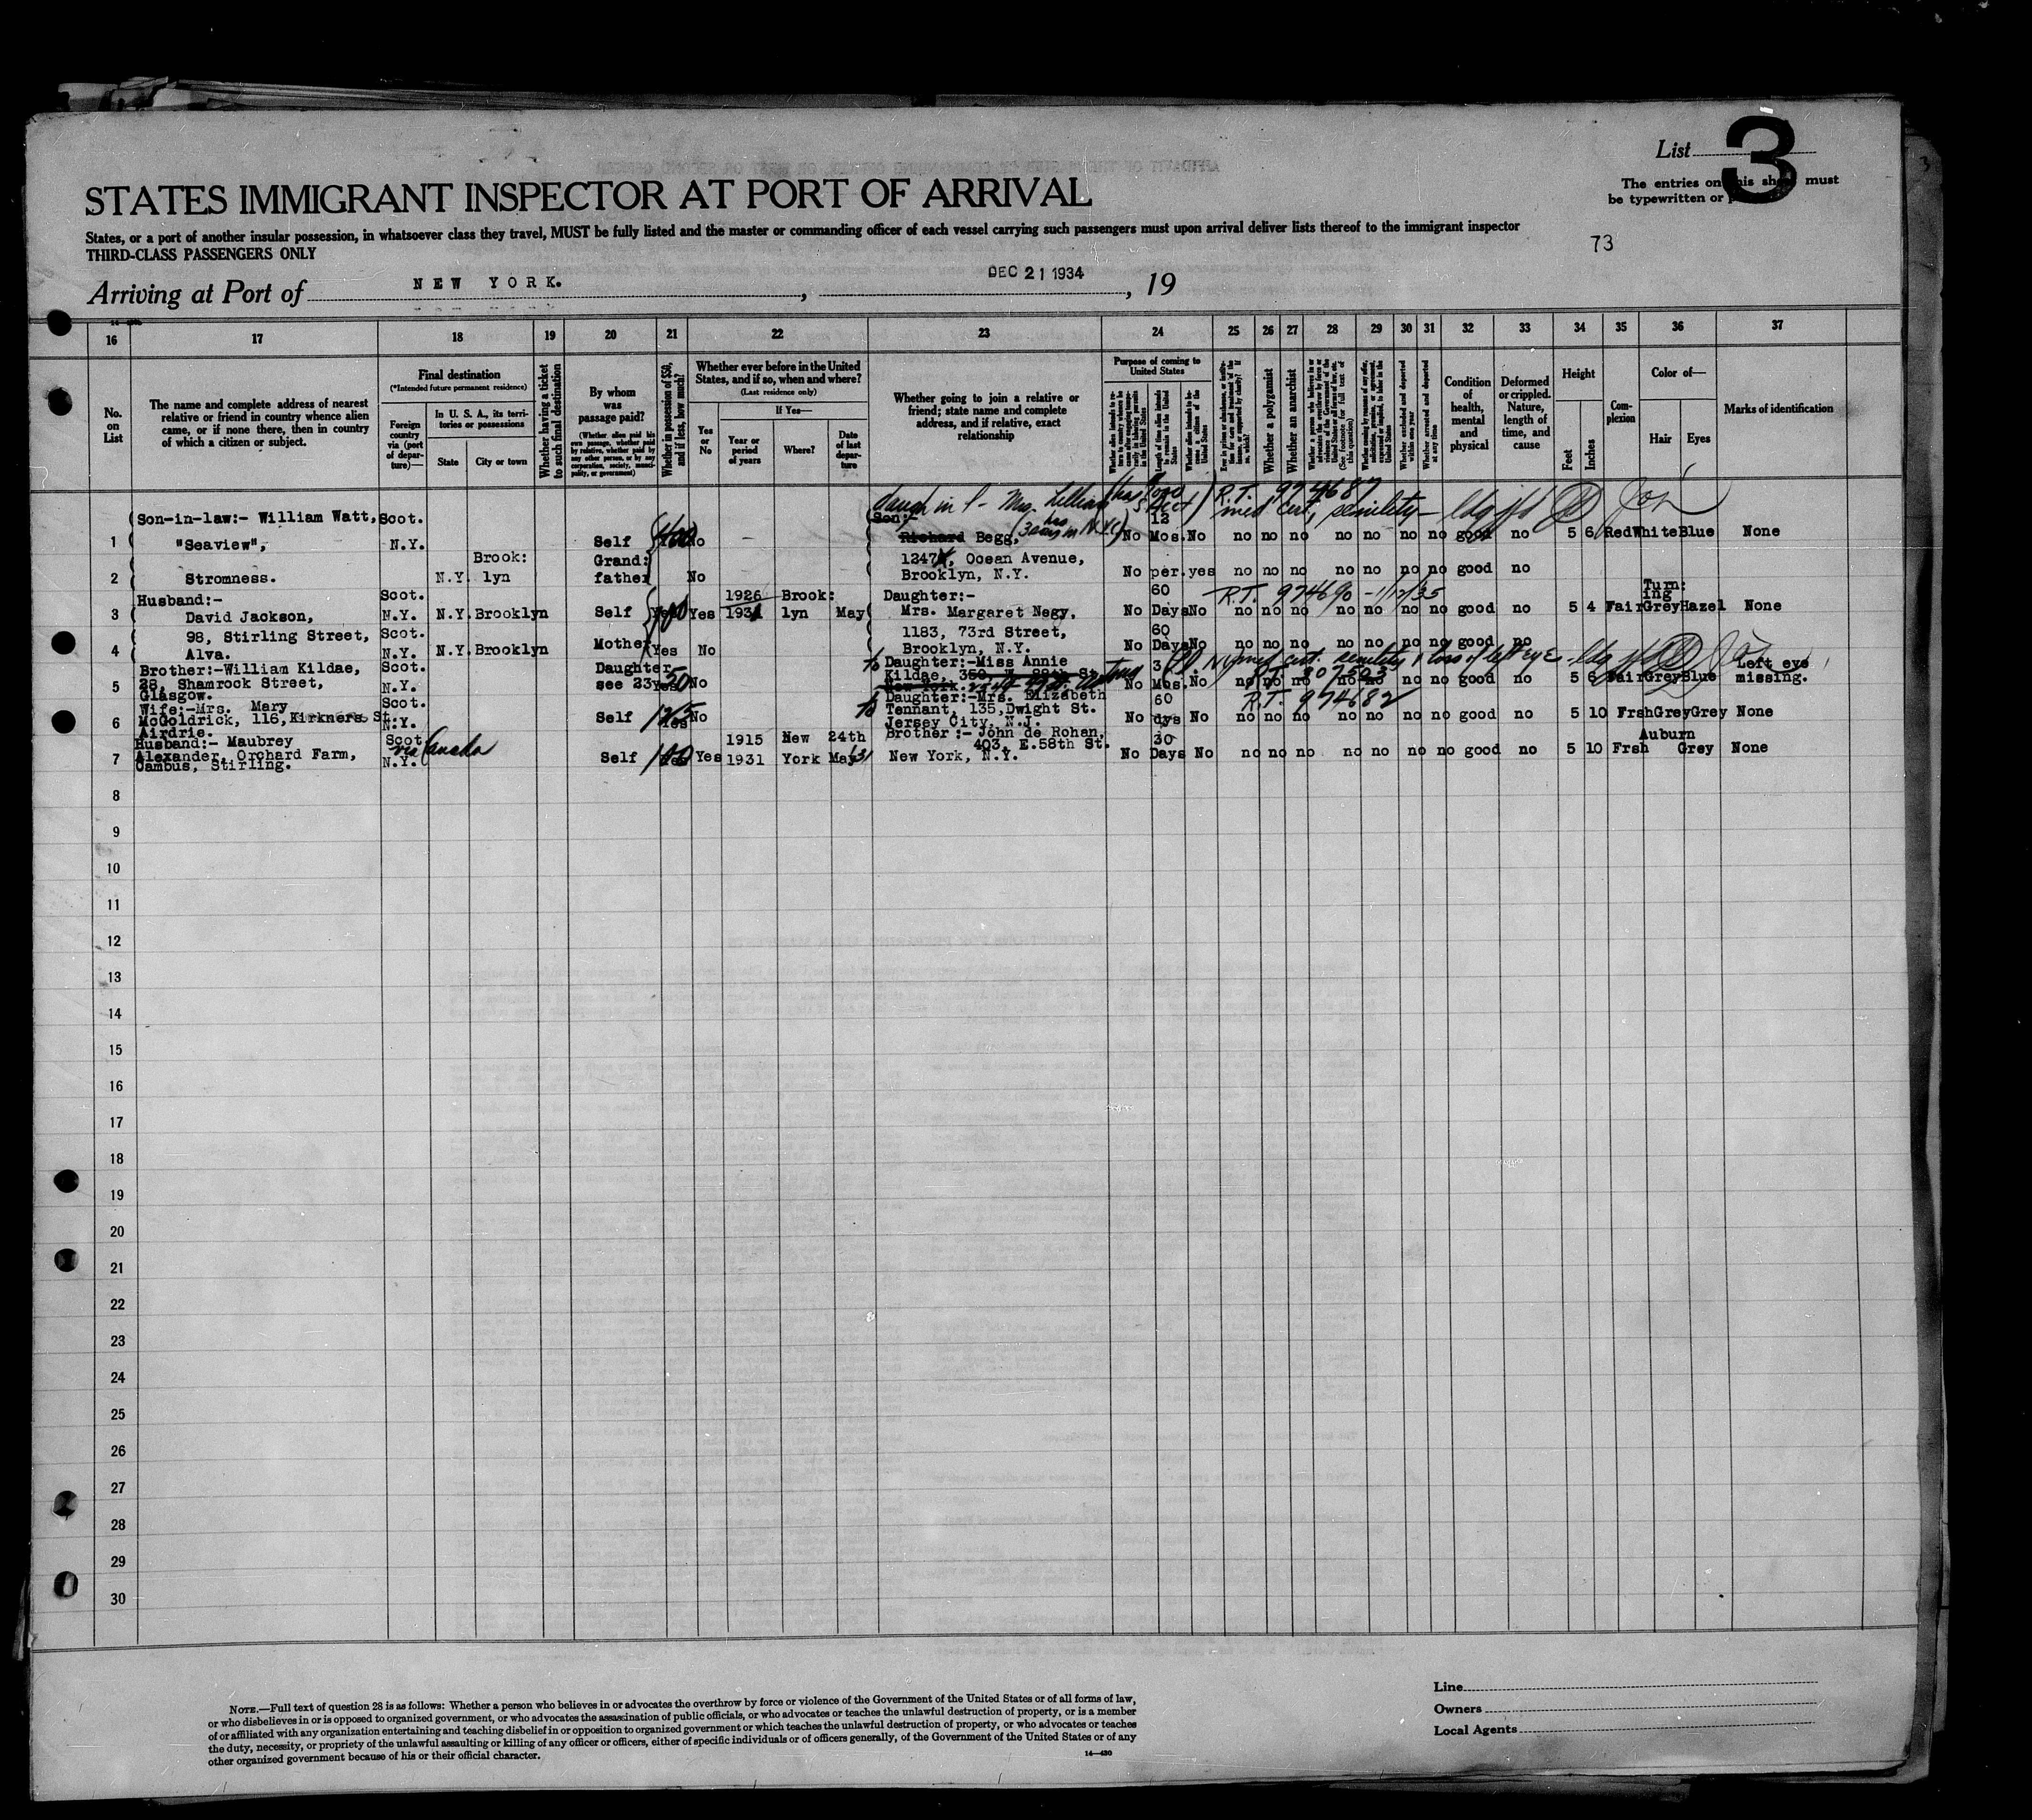 List 3
The entries on this sheet must
be typewritten or p
STATES IMMIGRANT INSPECTOR AT PORT OF ARRIVAL
States, or a port of another insular possession, in whatsoever class they travel, MUST be fully listed and the master or commanding officer of each vessel carrying such passengers must upon arrival deliver lists thereof to the immigrant inspector
THIRD-CLASS PASSENGERS ONLY
73
Arriving at Port of NEW YORK. , DEC 21 1934 , 19
16 17 18 19 20 21 22 23 24 25 26 27 28 29 30 31 32 33 34 35 36 37
No. on List
The name and complete address of nearest relative or friend in country whence alien came, or if none there, then in country of which a citizen or subject.
Final destination
(*Intended future permanent residence)
Foreign country via (port of departure)—
In U. S. A., its territories or possessions
State
City or town
Whether having a ticket to such final destination
By whom was passage paid?
(Whether alien paid his own passage, whether paid by relative, whether paid by any other person, or by any corporation, society, municipality, or government)
Whether in possession of $50, and if less, how much?
Whether ever before in the United States, and if so, when and where?
(Last residence only)
Yes or No
If Yes—
Year or period of years
Where?
Date of last departure
Whether going to join a relative or friend; state name and complete address, and if relative, exact relationship
Purpose of coming to United States
Length of time alien intends to remain in the United States
Whether alien intends to become a citizen of the United States
Whether a polygamist
Whether an anarchist
Whether excluded and deported within one year
Whether arrested and deported at any time
Condition of health, mental and physical
Deformed or crippled. Nature, length of time, and cause
Height
Feet
Inches
Complexion
Color of—
Hair
Eyes
Marks of identification
daugh in l - Mrs. Lillian R.T. 974687
med cert, senility
1 Son-in-law:- William Watt, "Seaview", Scot. N.Y. Self 100 No Son:- Richard Begg, 13 No Mos. No no no no no no no no good no 5 6 Red White Blue None
2 Stromness. N.Y. Brook: lyn Grand: father No 1247, Ocean Avenue, Brooklyn, N.Y. No per. yes no no no no no no no good no
R.T. 974690 - 1/12/35
3 Husband:- David Jackson, Scot. N.Y. N.Y. Brooklyn Self Yes Yes 1926 1931 Brook: lyn May Daughter:- Mrs. Margaret Negy, 60 No Days No no no no no no no no good no 5 4 Fair Turn: ing Grey Hazel None
4 98, Stirling Street, Alva. Scot. N.Y. N.Y. Brooklyn Mother Yes No 1183, 73rd Street, Brooklyn, N.Y. 60 No Days No no no no no no no no good no
med cert. senility & loss of left eye
5 Brother:-William Kildae, 28, Shamrock Street, Glasgow. Scot. N.Y. Daughter see 23 Yes 50 No to Daughter:-Miss Annie Kildae, New York. 3 No Mos. No no no no no no no no good no 5 6 Fair Grey Blue Left eye missing.
R.T. 974682
6 Wife:-Mrs. Mary McGoldrick, 116, Kirkness St. Airdrie. Scot. N.Y. Self Yes No to Daughter:-Mrs. Elizabeth Tennant, 135, Dwight St. Jersey City, N.J. 60 No dys No no no no no no no no good no 5 10 Frsh Grey Grey None
7 Husband:- Maubrey Alexander, Orchard Farm, Cambus, Stirling. Scot N.Y. via Canada Self 100 Yes 1915 1931 New York 24th May 31 Brother:- John de Rohan, 403, E.58th St. New York, N.Y. 30 No Days No no no no no no no no good no 5 10 Frsh Auburn Grey None
8
9
10
11
12
13
14
15
16
17
18
19
20
21
22
23
24
25
26
27
28
29
30
NOTE.—Full text of question 28 is as follows: Whether a person who believes in or advocates the overthrow by force or violence of the Government of the United States or of all forms of law,
or who disbelieves in or is opposed to organized government, or who advocates the assassination of public officials, or who advocates or teaches the unlawful destruction of property, or is a member
of or affiliated with any organization entertaining and teaching disbelief in or opposition to organized government or which teaches the unlawful destruction of property, or who advocates or teaches
the duty, necessity, or propriety of the unlawful assaulting or killing of any officer or officers, either of specific individuals or of officers generally, of the Government of the United States or of any
other organized government because of his or their official character.
14—430
Line
Owners
Local Agents